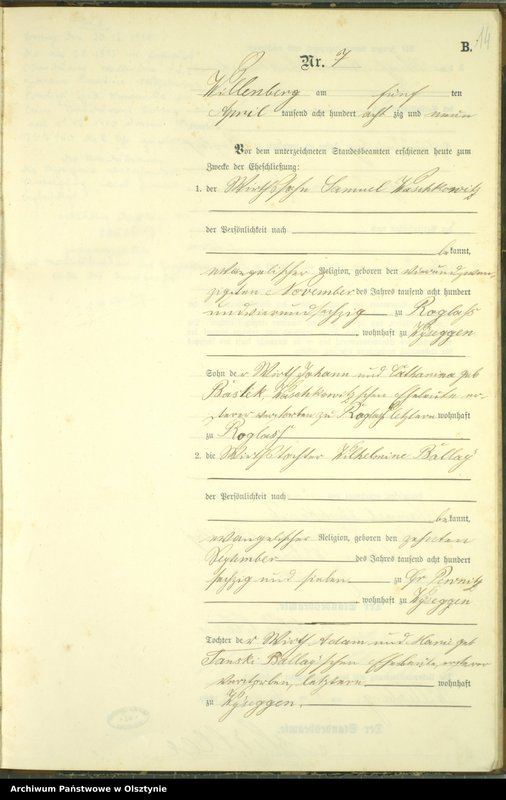 B.
14
Nr. 7
Willenberg am fünf ten
April tausend acht hundert acht zig und neun
Vor dem unterzeichneten Standesbeamten erschienen heute zum
Zwecke der Eheschließung:
1. der Wirthssohn Samuel Waschkowitz
der Persönlichkeit nach
bekannt,
evangelischer Religion, geboren den vierundzwan-
zigsten November des Jahres tausend acht hundert
undvierundsechzig zu Roglass
, wohnhaft zu
Sohn der Wirth Johann und Catharina geb
Bastek, Waschkowitz'schen Eheleute er-
sterer verstorben zu letztere wohnhaft
zu Roglass
2. die Wirthstochter Wilhelmine Ballay
der Persönlichkeit nach
bekannt,
evangelischer Religion, geboren den zehnten
September des Jahres tausend acht hundert
sechzig und sieben zu Gr.
, wohnhaft zu
Tochter der Wirth Adam und Marie geb
Tanski Ballay'schen Eheleute, ersterer
verstorben, letztere wohnhaft
zu
Archiwum Państwowe w Olsztynie